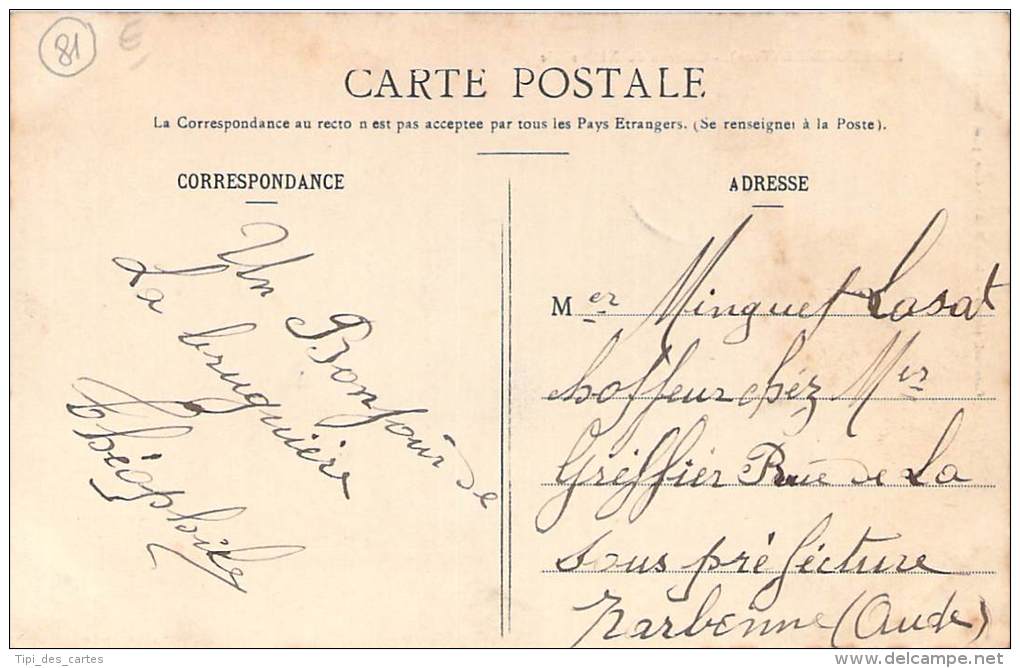 81
E
CARTE POSTALE
La Correspondance au recto n est pas acceptee par tous les Pays Etrangers. (Se renseigner à la Poste).
CORRESPONDANCE
Un Bonjour de
La bruguière
théophile
ADRESSE
Mer Minguet Lasat
choffeur chéz Mer
Gréffier Rue de La
sous préfécture
Narbonne (Aude)
Tipi_des_cartes
www.delcampe.net